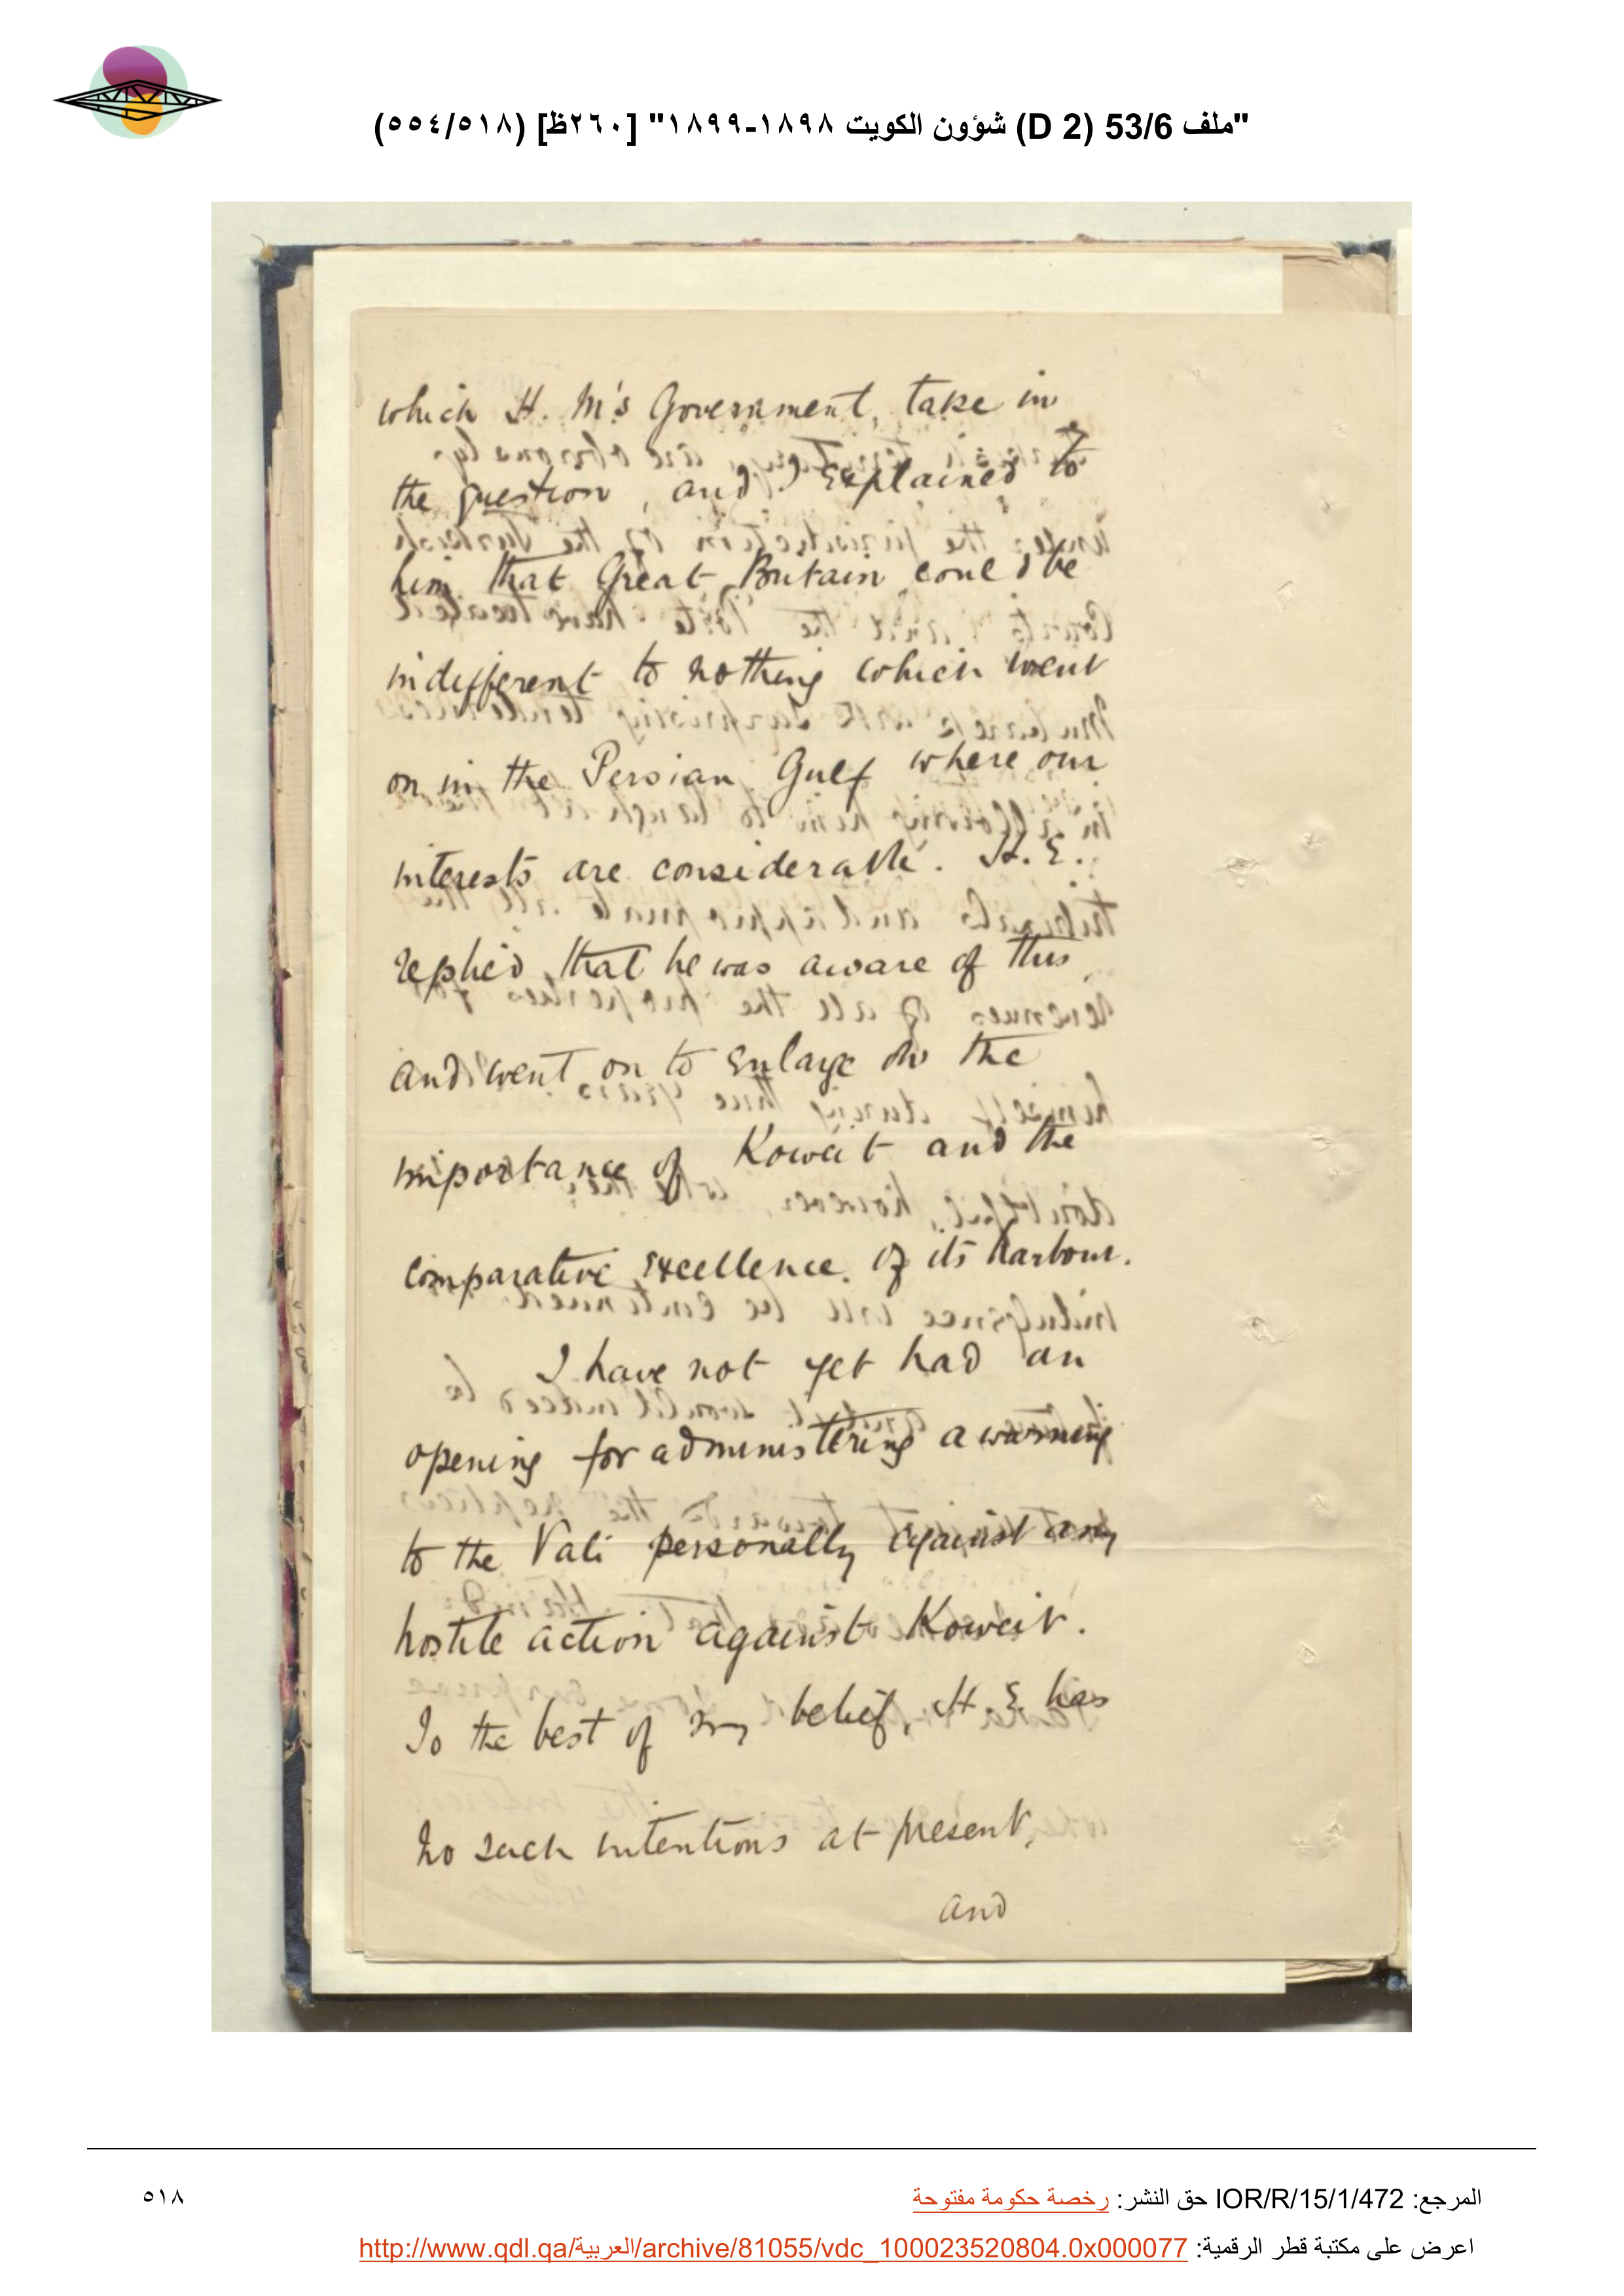 "ملف 53/6 (D 2) شؤون الكويت ١٨٩٨-١٨٩٩" [٢٦٠ظ] (٥١٨/٥٥٤)
which H. M's Government take in
the question, and I explained to
him that Great Britain could be
indifferent to nothing which went
on in the Persian Gulf where our
interests are considerable. H. E.
replied that he was aware of this
and went on to enlarge on the
importance of Koweit and the
comparative excellence of its harbour.
I have not yet had an
opening for administering a warning
to the Vali personally against any
hostile action against Koweit.
To the best of my belief, H E has
no such intentions at present,
and
المرجع: IOR/R/15/1/472 حق النشر: رخصة حكومة مفتوحة
٥١٨
اعرض على مكتبة قطر الرقمية: http://www.qdl.qa/العربية/archive/81055/vdc_100023520804.0x000077